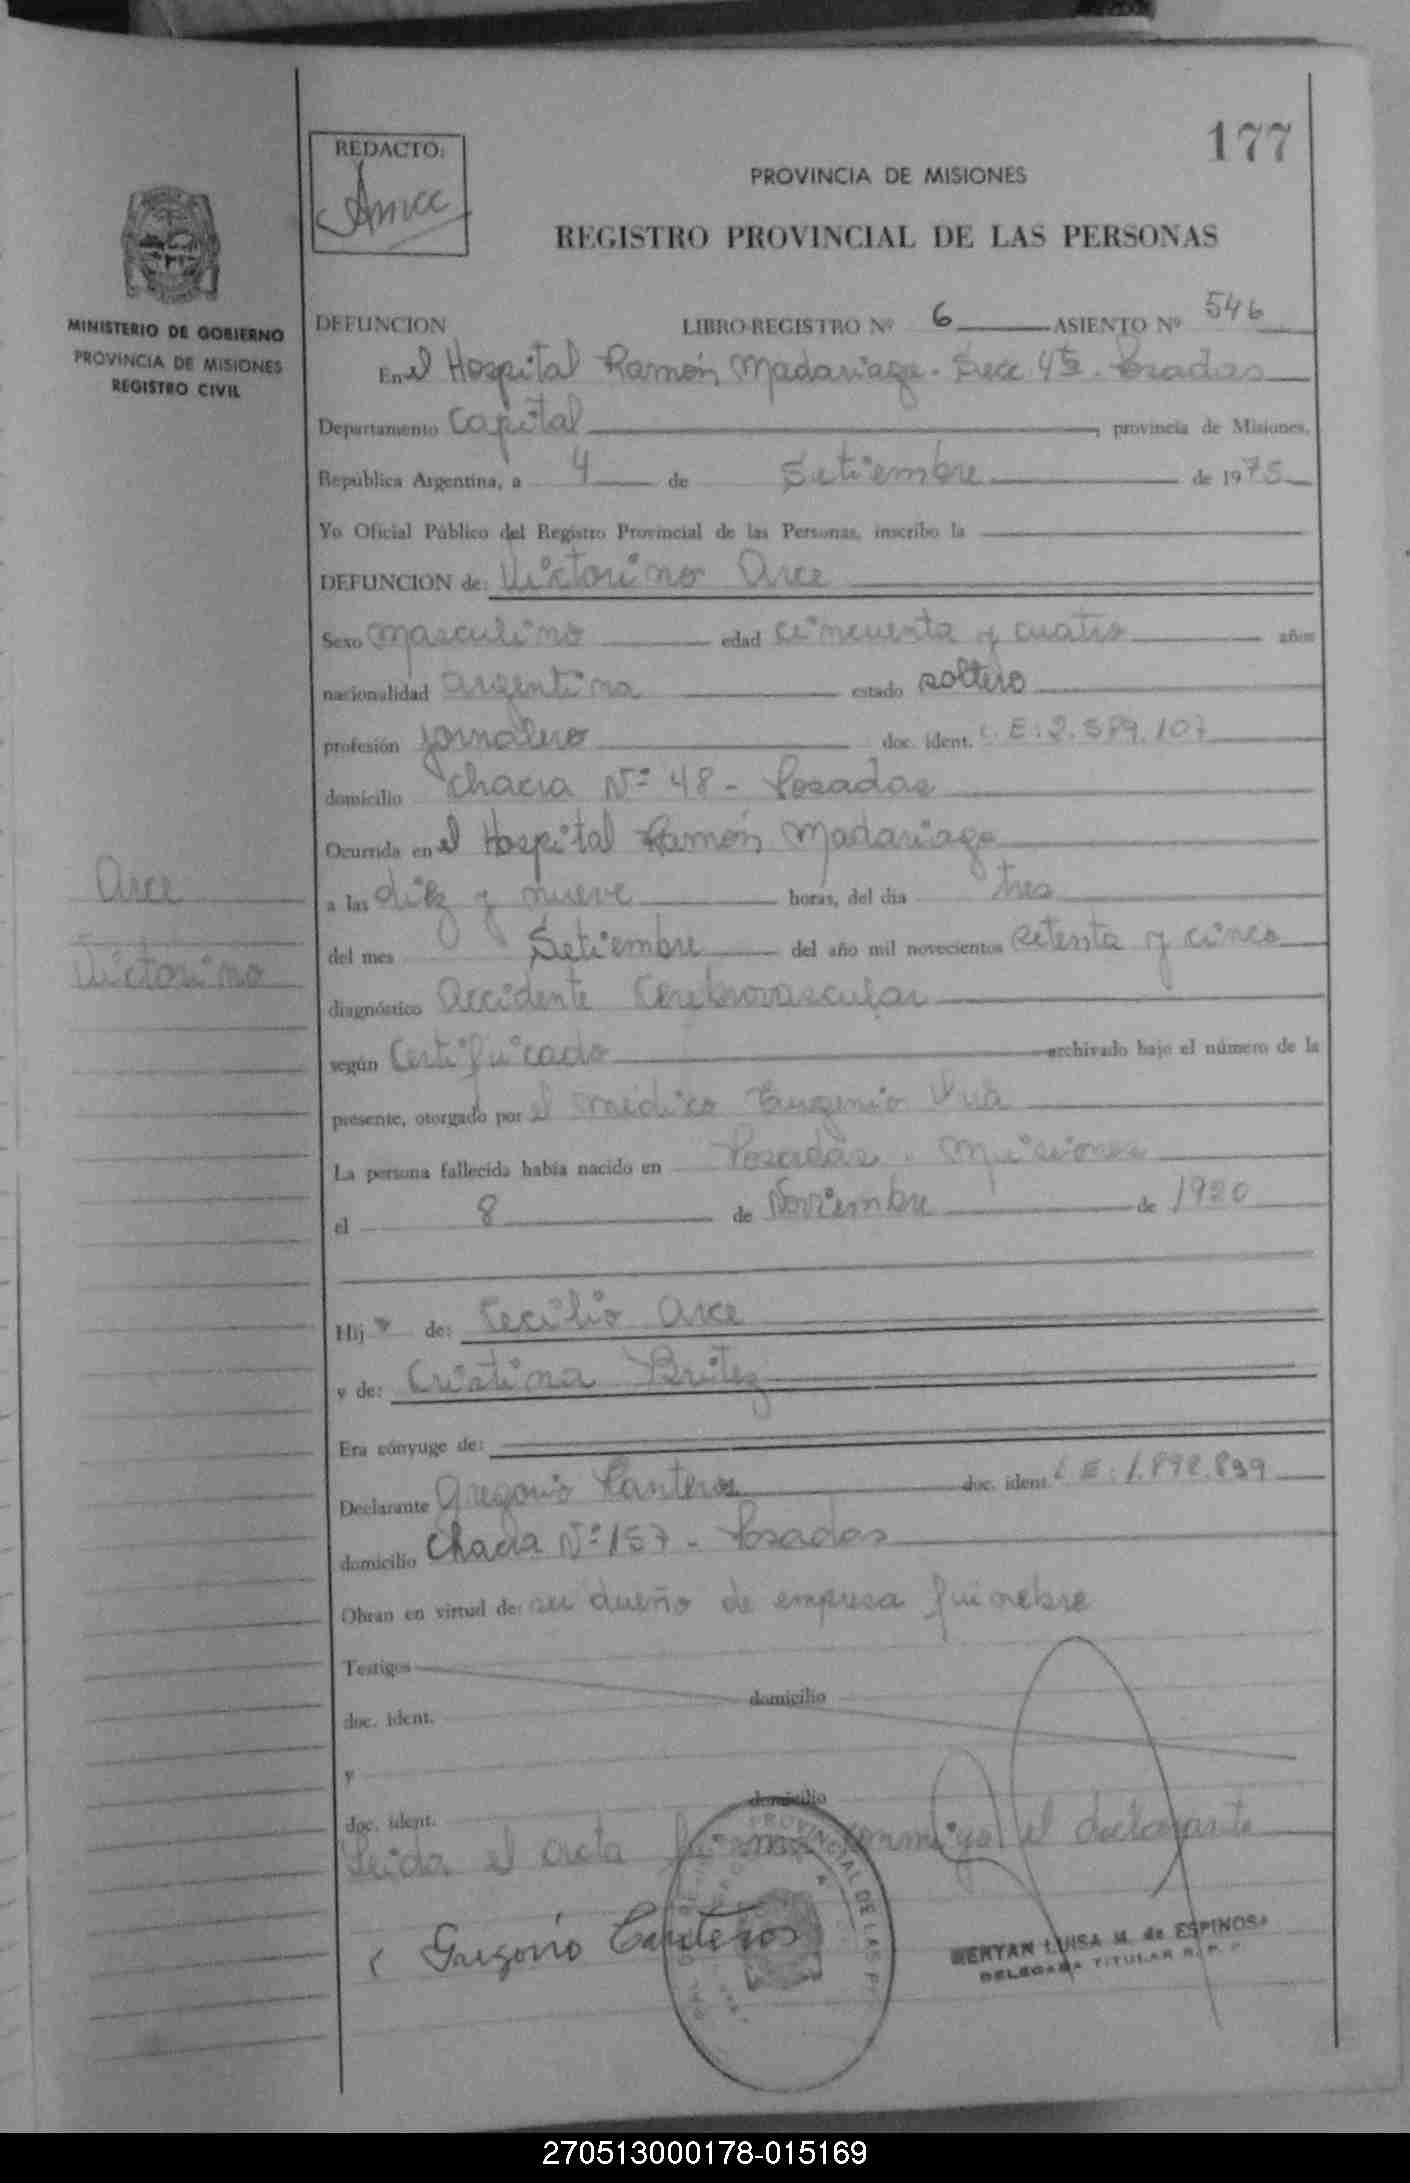 177
REDACTO:
PROVINCIA DE MISIONES
REGISTRO PROVINCIAL DE LAS PERSONAS
MINISTERIO DE GOBIERNO
PROVINCIA DE MISIONES
REGISTRO CIVIL
DEFUNCION LIBRO-REGISTRO Nº 6 ASIENTO Nº 546
En el Hospital Ramón Madariaga - Secc 4ta. Posadas
Departamento Capital, provincia de Misiones,
República Argentina, a 4 de Setiembre de 1975
Yo Oficial Público del Registro Provincial de las Personas, inscribo la
DEFUNCION de: Victorino Arce
Sexo masculino edad cincuenta y cuatro años
nacionalidad argentina estado soltero
profesión jornalero doc. ident. L.E: 2.589.107
domicilio Chacra Nº 48 - Posadas
Ocurrida en el Hospital Ramón Madariaga
a las diez y nueve horas, del día tres
del mes Setiembre del año mil novecientos setenta y cinco
diagnóstico Accidente Cerebrovascular
según Certificado archivado bajo el número de la
presente, otorgado por el médico Eugenio
La persona fallecida había nacido en Posadas - Misiones
el 8 de Noviembre de 1920
Hijo de: Cecilio Arce
y de: Cristina Britez
Era cónyuge de:
Declarante Gregorio Canteros doc. ident. L E: 1.892.899
domicilio Chacra Nº 157 - Posadas
Obran en virtud de: ser dueño de empresa fúnebre
Testigos domicilio
doc. ident.
y domicilio
doc. ident.
Leida el acta firma conmigo el declarante
Gregorio Canteros
PROVINCIAL DE LAS
MERYAN LUISA M. de ESPINOSA
DELEGADA TITULAR R. P. P.
Arce
Victorino
270513000178-015169